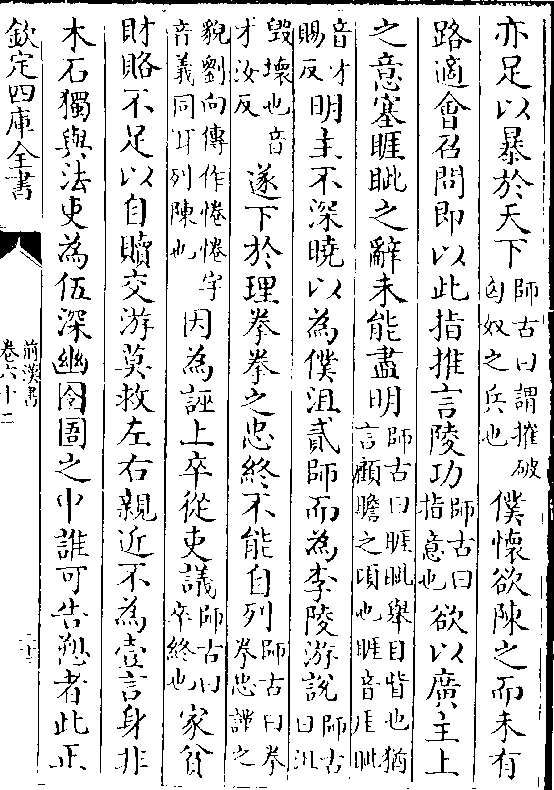 亦足以暴於天下師古曰謂摧破匈奴之兵也僕懷欲陳之而未有
路適會召問即以此指推言陵功師古曰指意也欲以廣主上
之意塞睚眦之辭未能盡明師古曰睚眦舉目眥也猶言顧瞻之頃也睚音厓眦
音才賜反明主不深曉以為僕沮貳師而為李陵游說師古曰沮
毁壞也音才汝反遂下於理拳拳之忠終不能自列師古曰拳拳忠謹之
貌劉向傳作惓惓字音義同耳列陳也因為誣上卒從吏議師古曰卒終也家貧
財賂不足以自贖交游莫救左右親近不為壹言身非
木石獨與法吏為伍深幽囹圄之中誰可告愬者此正
欽定四庫全書
前漢書
卷六十二